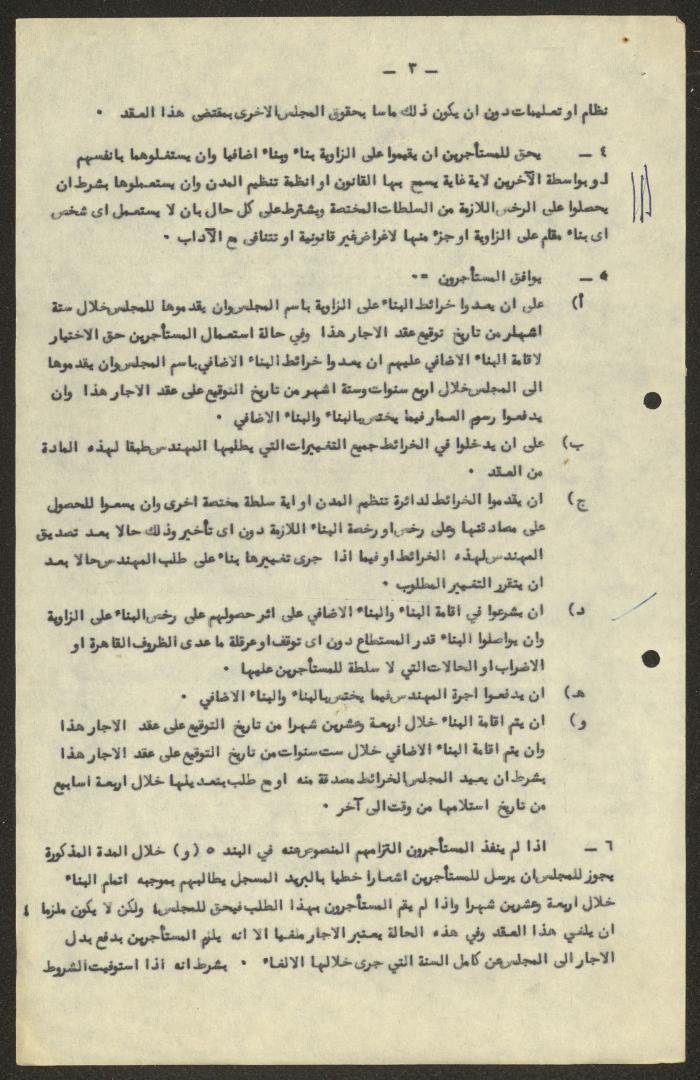 — ٣ —
نظام او تعليمات دون ان يكون ذلك ماسا بحقوق المجلس الاخرى بمقتضى هذا العقد ٠
٤ — يحق للمستأجرين ان يقيموا على الزاوية بناء وبناء اضافيا وان يستغلوهما بانفسهم
او بواسطة الآخرين لاية غاية يسمح بها القانون او انظمة تنظيم المدن وان يستعملوها بشرط ان
يحصلوا على الرخص اللازمة من السلطات المختصة ويشترط على كل حال بان لا يستعمل اى شخص
اى بناء مقام على الزاوية او جزء منها لاغراض غير قانونية او تتنافى مع الآداب ٠
٥ — يوافق المستأجرون =٠
أ) على ان يعدوا خرائط البناء على الزاوية باسم المجلس وان يقدموها للمجلس خلال ستة
اشهر من تاريخ توقيع عقد الاجار هذا وفي حالة استعمال المستأجرين حق الاختيار
لاقامة البناء الاضافي عليهم ان يعدوا خرائط البناء الاضافي باسم المجلس وان يقدموها
الى المجلس خلال اربع سنوات وستة اشهر من تاريخ التوقيع على عقد الاجار هذا وان
يدفعوا رسوم المعمار فيما يختص بالبناء والبناء الاضافي ٠
ب) على ان يدخلوا في الخرائط جميع التغييرات التي يطلبها المهندس طبقا لهذه المادة
من العقد ٠
ج) ان يقدموا الخرائط لدائرة تنظيم المدن او اية سلطة مختصة اخرى وان يسعوا للحصول
على مصادقتها وعلى رخص او رخصة البناء اللازمة دون اى تأخير وذلك حالا بعد تصديق
المهندس لهذه الخرائط او فيما اذا جرى تغييرها بناء على طلب المهندس حالا بعد
ان يتقرر التغيير المطلوب ٠
د) ان يشرعوا في اقامة البناء والبناء الاضافي على اثر حصولهم على رخص البناء على الزاوية
وان يواصلوا البناء قدر المستطاع دون اى توقف او عرقلة ما عدى الظروف القاهرة او
الاضراب او الحالات التي لا سلطة للمستأجرين عليها ٠
هـ) ان يدفعوا اجرة المهندس فيما يختص بالبناء والبناء الاضافي ٠
و) ان يتم اقامة البناء خلال اربعة وعشرين شهرا من تاريخ التوقيع على عقد الاجار هذا
وان يتم اقامة البناء الاضافي خلال ست سنوات من تاريخ التوقيع على عقد الاجار هذا
بشرط ان يعيد المجلس الخرائط مصدقة منه او مع طلب بتعديلها خلال اربعة اسابيع
من تاريخ استلامها من وقت الى آخر ٠
٦ — اذا لم ينفذ المستأجرون التزامهم المنصوص عنه في البند ٥ (و) خلال المدة المذكورة
يجوز للمجلس ان يرسل للمستأجرين اشعارا خطيا بالبريد المسجل يطالبهم بموجبه اتمام البناء
خلال اربعة وعشرين شهرا واذا لم يقم المستأجرون بهذا الطلب فيحق للمجلس ٤ ولكن لا يكون ملزما ٤
ان يلغي هذا العقد وفي هذه الحالة يعتبر الاجار ملغيا الا انه يلزم المستأجرين بدفع بدل
الاجار الى المجلس عن كامل السنة التي جرى خلالها الالغاء ٠ بشرط انه اذا استوفيت الشروط